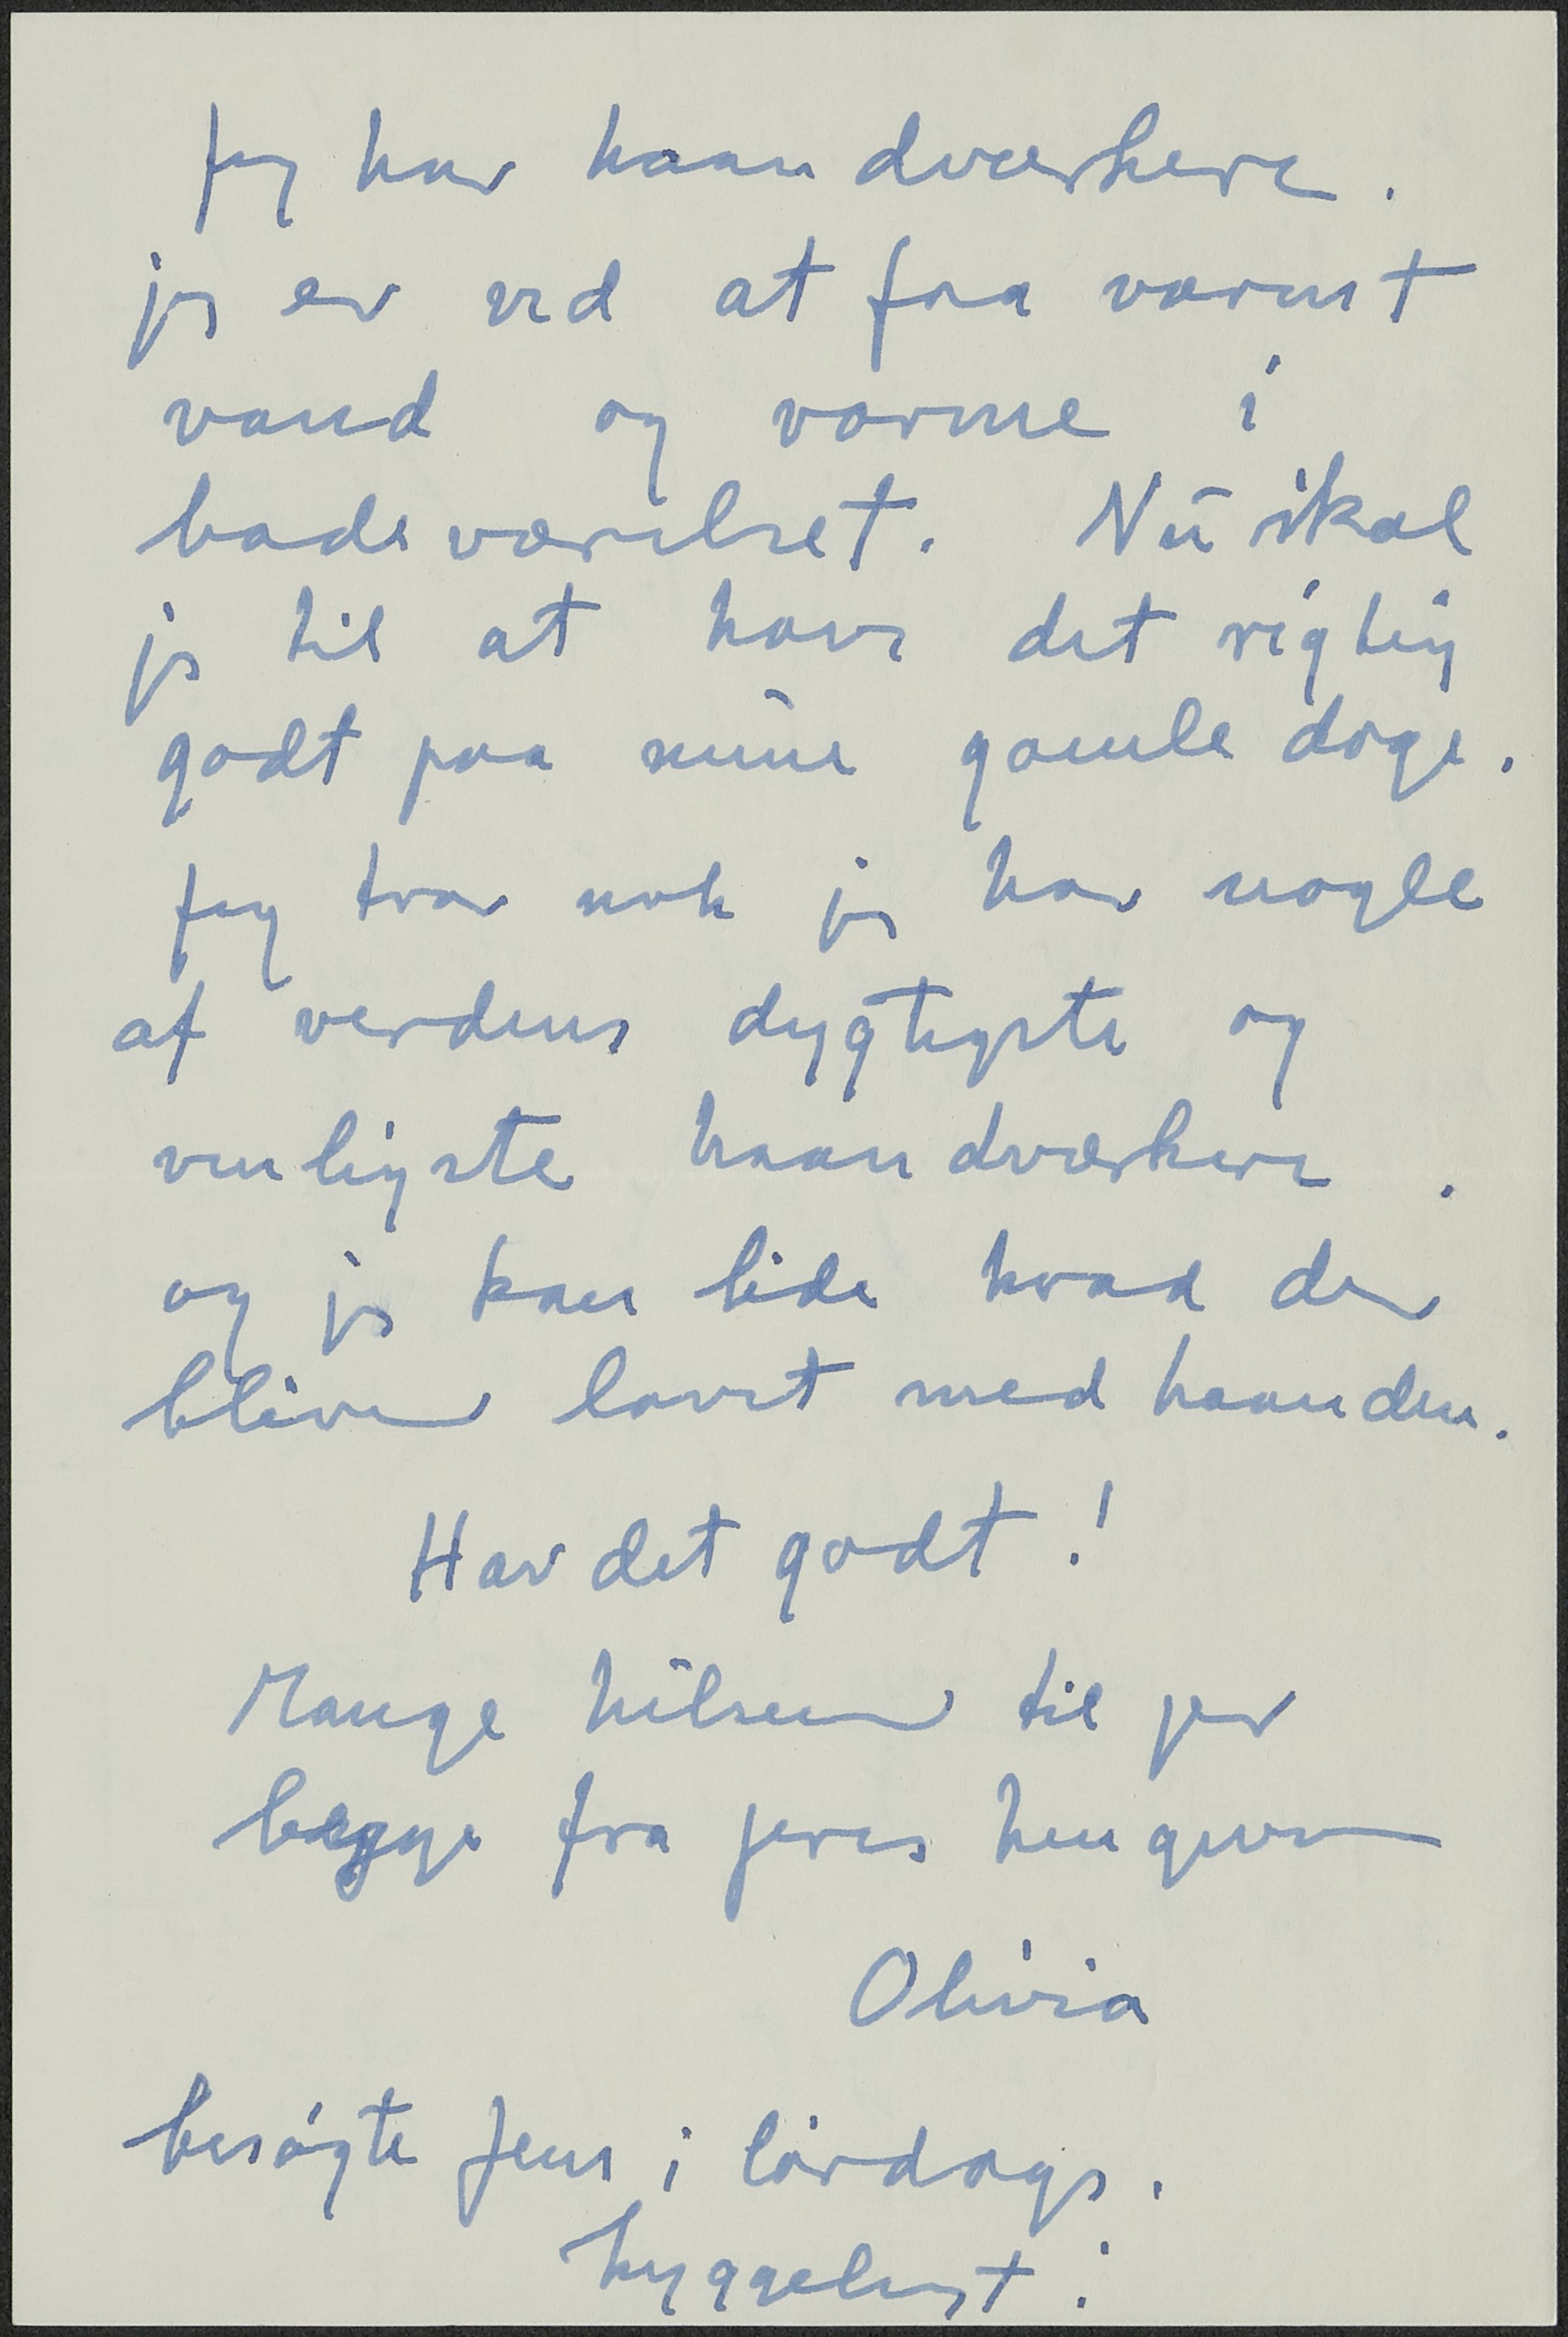 Jeg har haandværkere.
jeg er ved at faa varmt
vand og varme i
badeværelset. Nu skal
jeg til at have det rigtig
godt paa mine gamle dage.
Jeg tror nok jeg har nogle
af verdens dygtigste og
venligste haandværkere.
og jeg kan lide hvad der
bliver lavet med haanden.
Hav det godt!
Mange hilsener til jer
begge fra jeres hengivne
Olivia
besøgte Jens i lørdags.
hyggeligt!